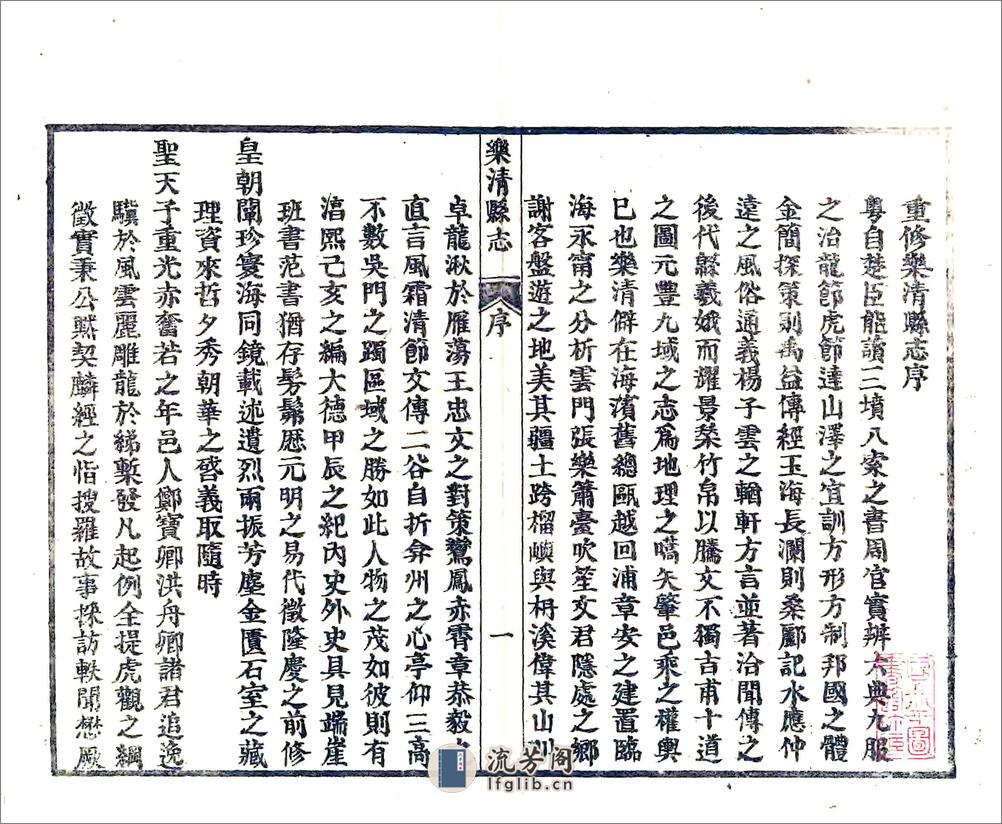 重修樂清縣志序
粵自楚臣能讀三墳八索之書周官實辨六典九服
之治龍節虎節達山澤之宜訓方形方制邦國之體
金簡探策剬禹益傳經玉海長瀾則桑酈記水應仲
遠之風俗通義楊子雲之輶軒方言並著洽聞傳之
後代緜羲娥而耀景榮竹帛以騰文不獨吉甫十道
之圖元豊九域之志爲地理之嚆矢肇邑乘之權輿
已也樂清僻在海濱舊總甌越回浦章安之建置臨
海永甯之分析雲門張樂簫臺吹笙文君隱處之鄉
謝客盤遊之地美其疆土跨榴嶼與枬溪偉其山川
樂清縣志
序
一
卓龍湫於雁蕩王忠文之對策鸞鳳赤霄章恭毅之
直言風霜清節文傳二谷自折弇州之心亭仰三高
不數吳門之躅區域之勝如此人物之茂如彼則有
湻熙己亥之編大德甲辰之紀內史外史具見端崖
班書范書猶存髣髴歷元明之易代徵隆慶之前修
皇朝闡珍寰海同鏡載述遺烈兩振芳塵金匱石室之藏
理資來哲夕秀朝華之啓義取隨時
聖天子重光赤奮若之年邑人鄭寶卿洪舟卿諸君追逸
驥於風雲麗雕龍於綈槧發凡起例全提虎觀之綱
徵實秉公默契麟經之恉搜羅故事採訪軼聞懋厥
流芳阁
lfglib.cn